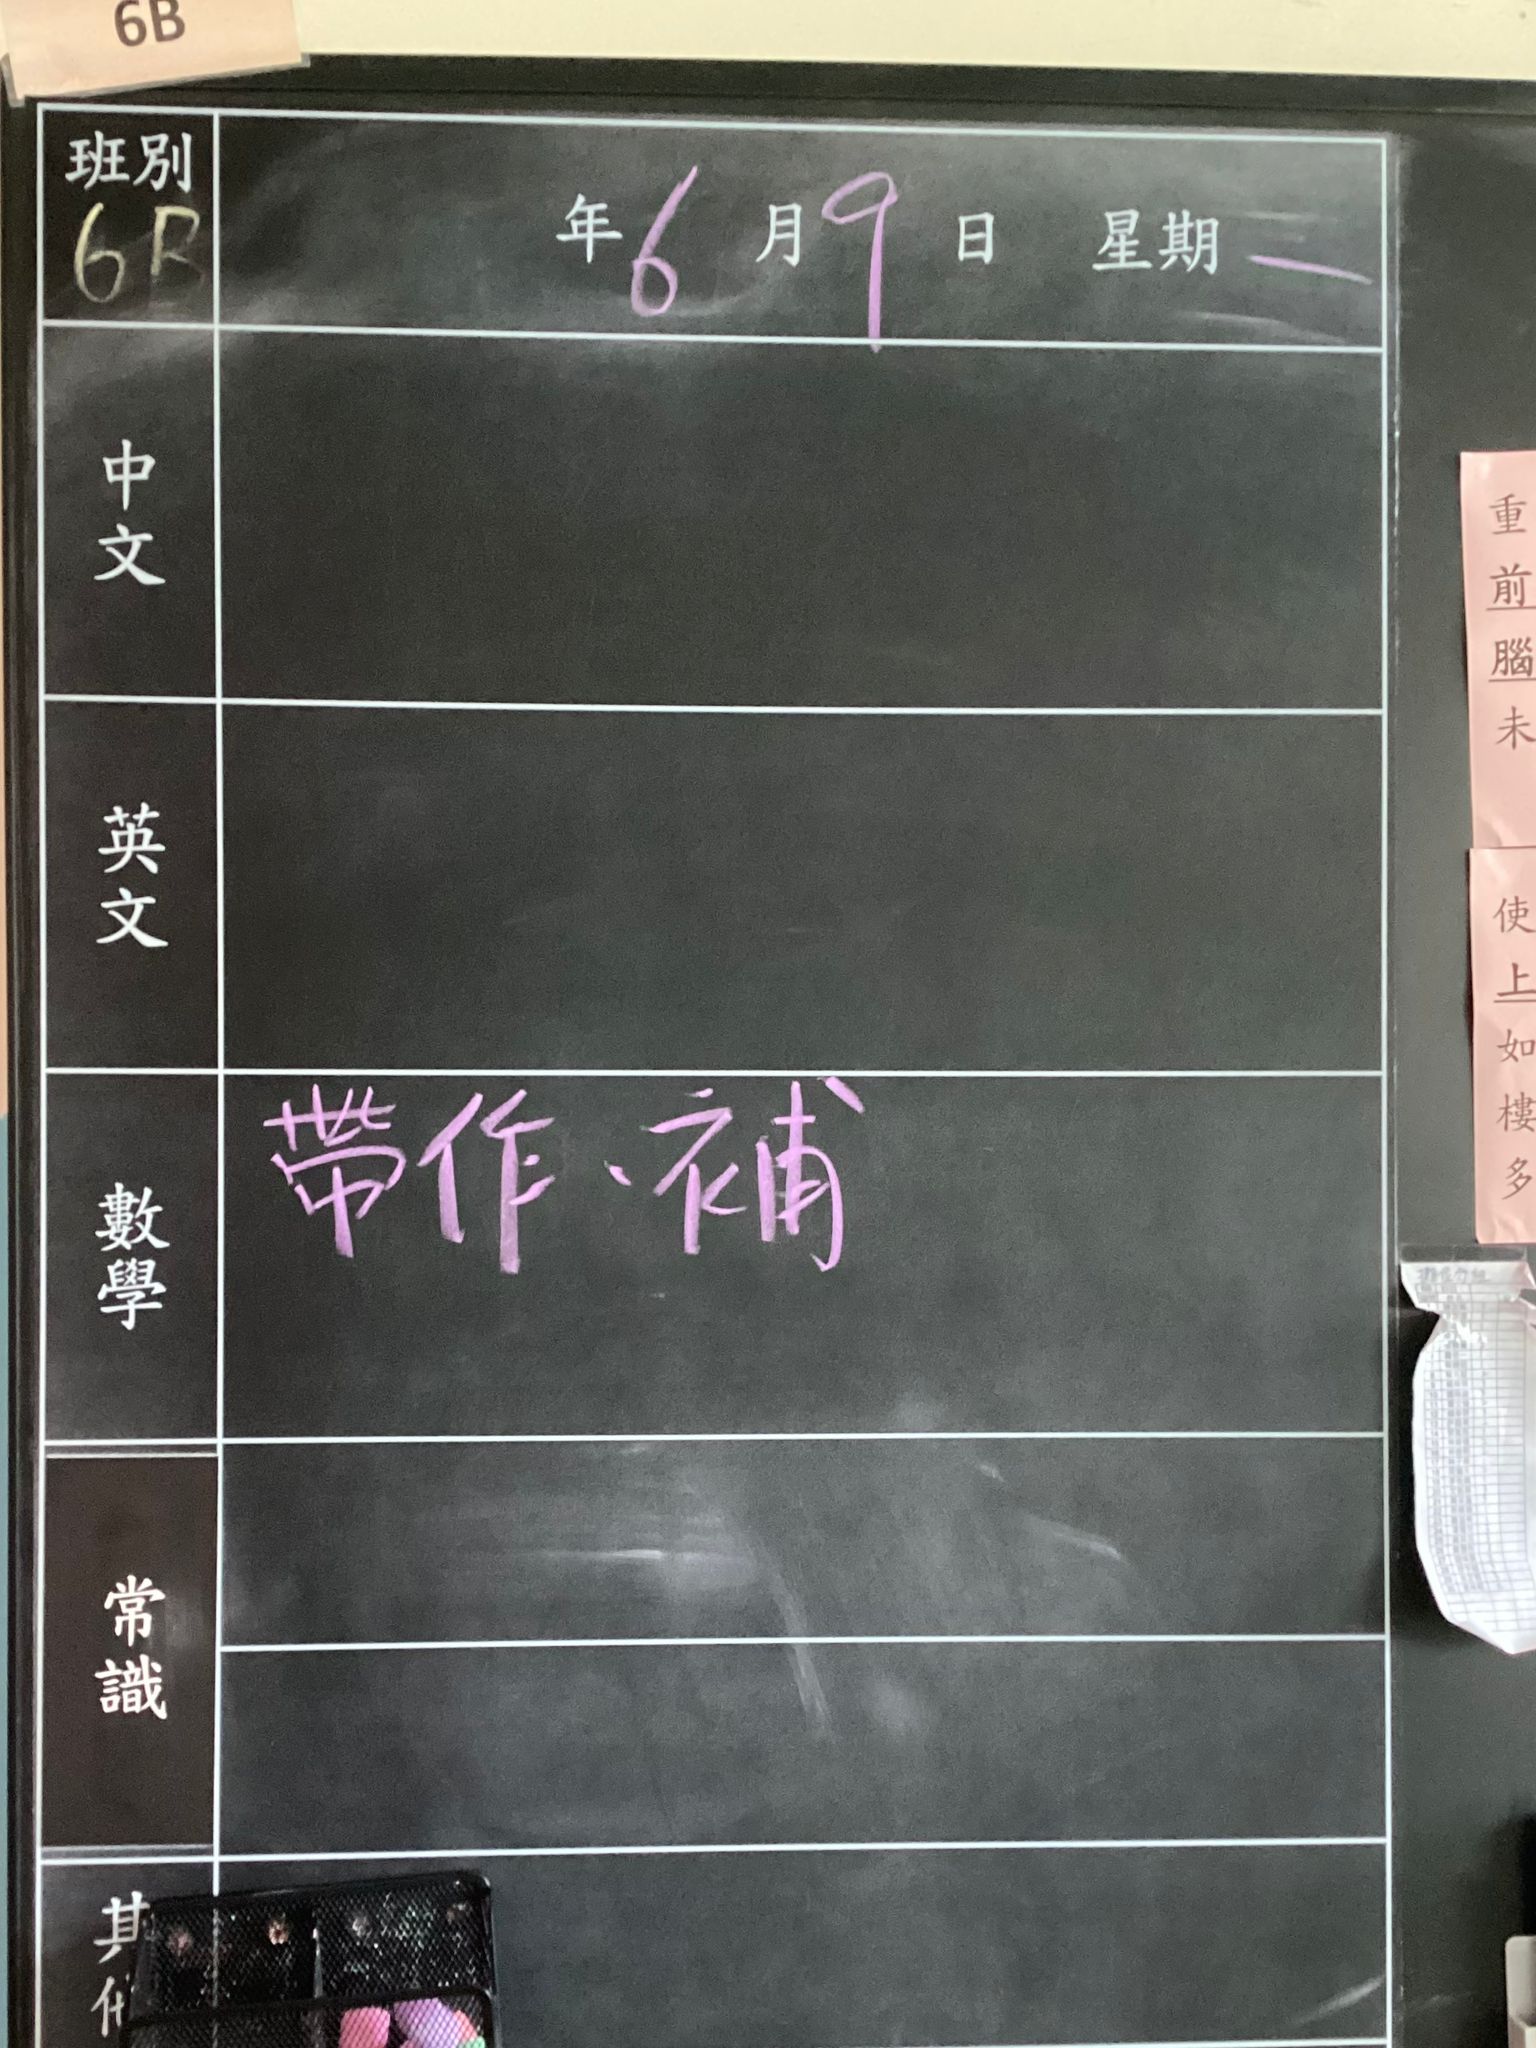 6B
班別
6B
年6月9日 星期一
中文
英文
數學
帶作、補
常識
其他
重
前
腦
未
使
上
如
樓
多